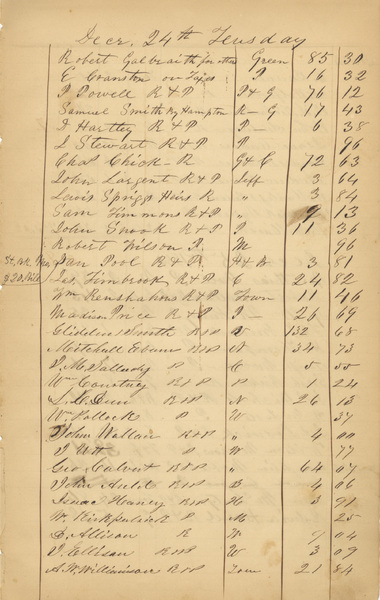 Decr. 24th Teusday
Robert Galbraith for other Green 85 30
E Cranston on Tapes P 16 32
P Powell R & P P & G 76 12
Samuel Smith by Hampton R - G 17 43
D Hartley R & P P - 6 38
L Stewart R & P P 96
Chas Chick - R G & C 72 63
John Largent R & P Jeff 3 64
Lewis Spriggs Heirs R " 3 84
Sam Timmons R & P " 9 13
John Snook R & P P 11 36
Robert Wilson P. M 96
Pool R & P 3 81
Jas. Timbrook R & P C 24 82
Wm Renshahons R & P Town 11 46
Madison Price R & P P - 26 69
Glidden Smith R & P V 132 68
Mitchell Evans R & P N 34 73
P. M. P C 5 55
Wm Courtney R & P P 1 24
S. C. R & P N 26 13
Wm Pollock P W 37
John Wallace R & P " 4 00
J Utt P W 77
Geo Calvert R & P " 64 07
John Auld R & P B 4 06
Isaac Haney R & P H 3 91
W. Kirkpatrick P M 25
D. Allison R W 9 04
J. Ellison R & P W 3 09
A. W. Williamson R & P Town 21 84